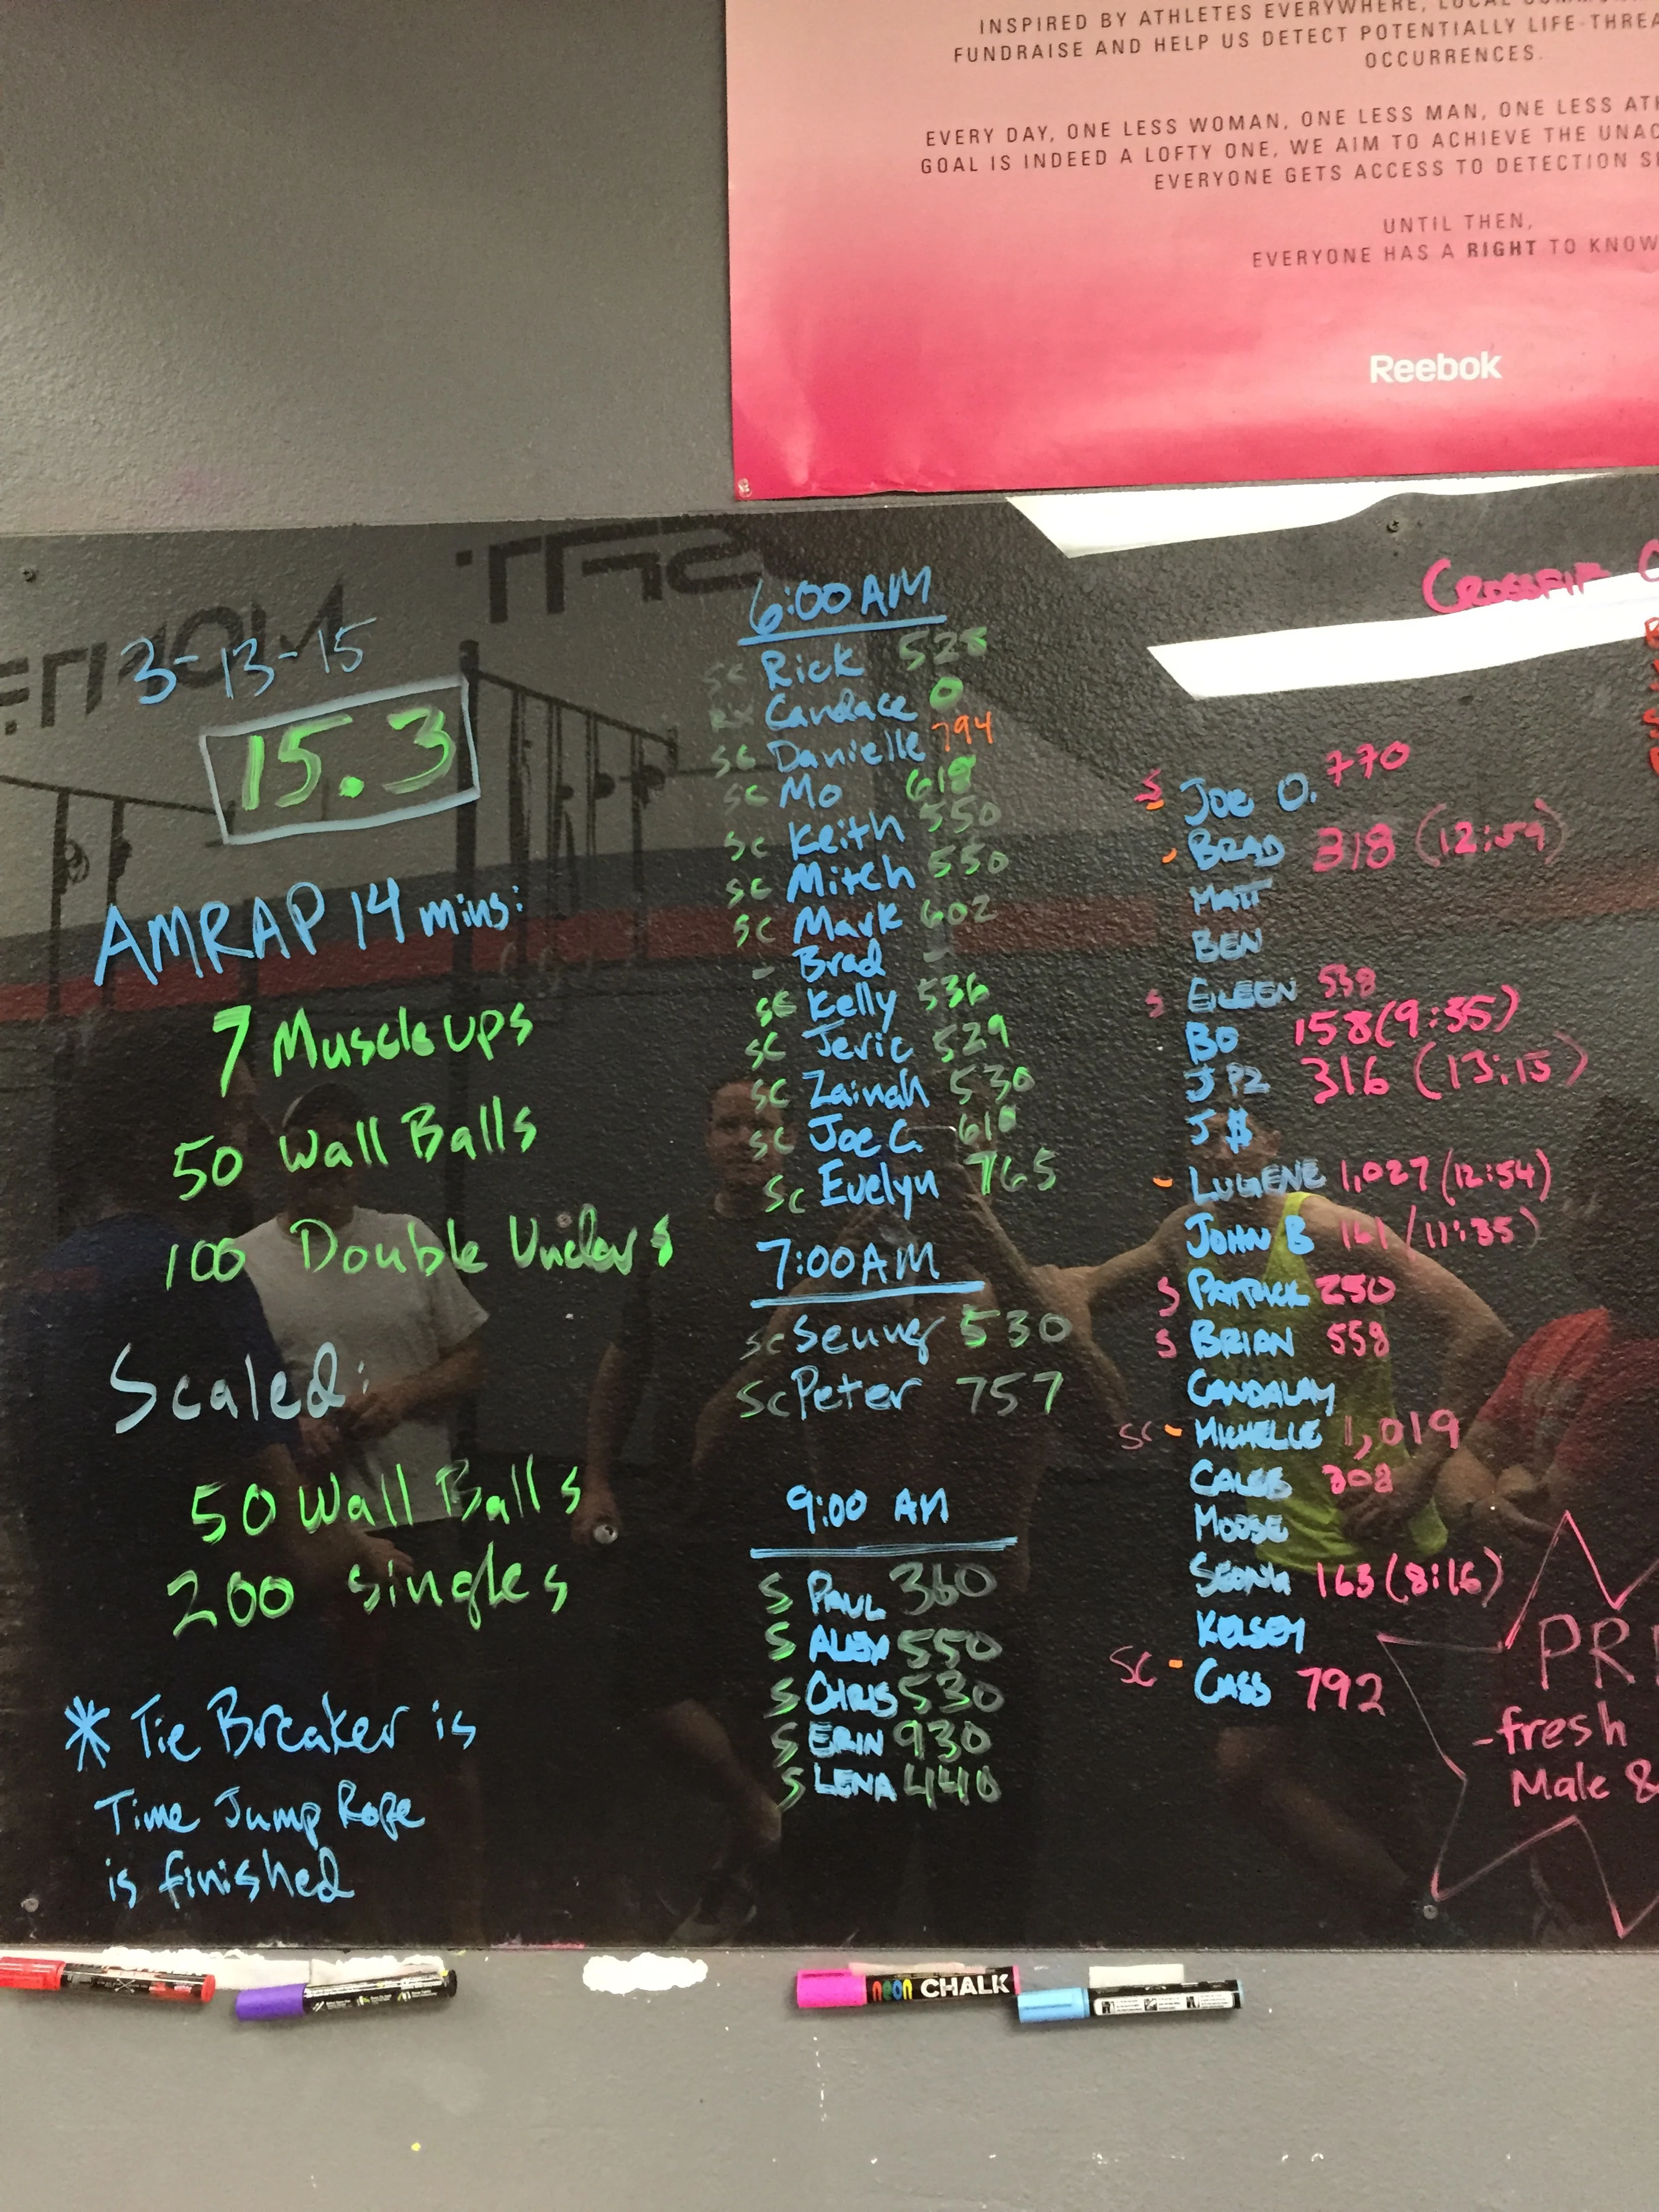 INSPIRED BY ATHLETES EVERYWHERE, LOCAL
FUNDRAISE AND HELP US DETECT POTENTIALLY LIFE-THREA
OCCURRENCES.
EVERY DAY, ONE LESS WOMAN, ONE LESS MAN, ONE LESS ATH
GOAL IS INDEED A LOFTY ONE, WE AIM TO ACHIEVE THE UNAC
EVERYONE GETS ACCESS TO DETECTION S
UNTIL THEN,
EVERYONE HAS A RIGHT TO KNOW
Reebok
3-13-15
15.3
AMRAP 14 mins:
7 Muscle ups
50 Wall Balls
100 Double Unders
Scaled:
50 Wall Balls
200 Singles
* Tie Breaker is
Time Jump Rope
is finished
6:00 AM
SC Rick 528
RX Candace 0
SC Danielle 794
SC Mo 618
SC Keith 550
SC Mitch 550
SC Mark 602
- Brad -
SC Kelly 536
SC Jeric 529
SC Zainah 530
SC Joe C. 618
SC Evelyn 765
7:00 AM
SC 530
SC Peter 757
9:00 AM
S PAUL 360
S ALEX 550
S CHRIS 530
S ERIN 930
S LENA 440
CROSSFIT
S JOE O. 770
- BRAD 318 (12:59)
MATT
BEN
S EILEEN 558
BO 158 (9:35)
JPZ 316 (13:15)
J$
- LUGENE 1,027 (12:54)
JOHN B 161 (11:35)
S PATRICK 250
S BRIAN 558
CANDALAY
SC - MICHELLE 1,019
CALEB 308
MOOSE
SEONG 163 (8:16)
KELSEY
SC - CASS 792
PRI
-fresh
Male &
neon CHALK